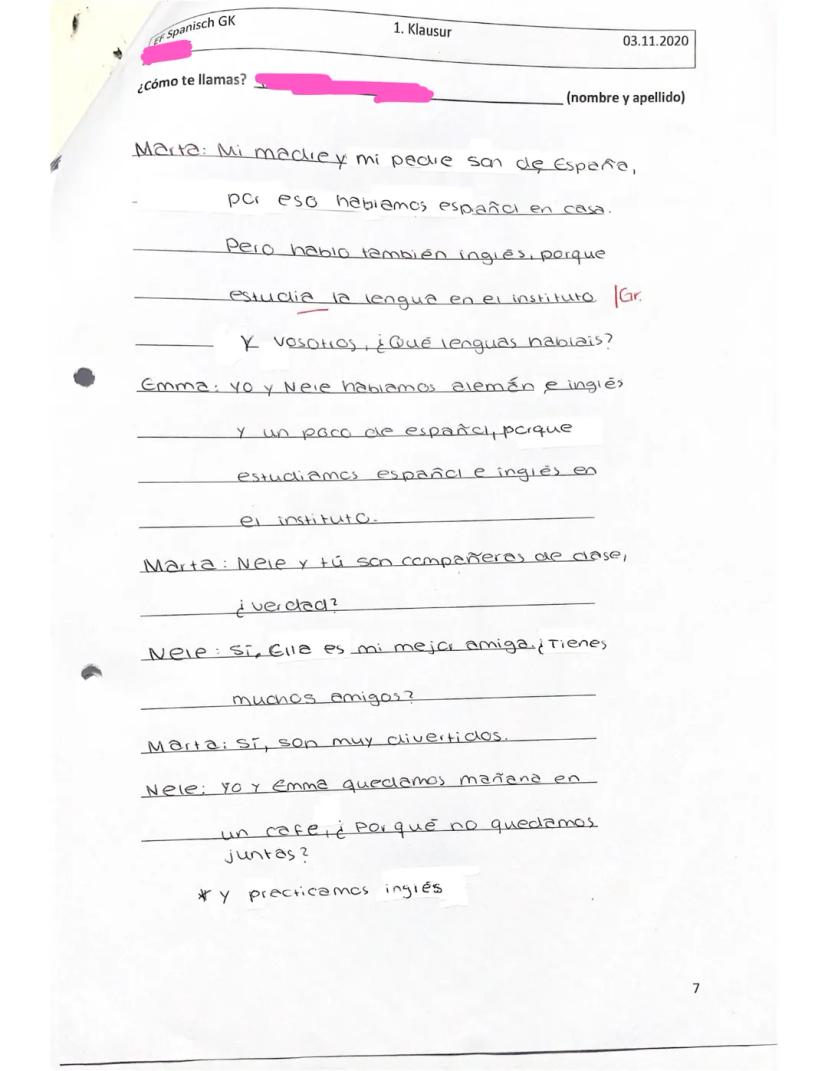 EF Spanisch GK
1. Klausur
03.11.2020
¿Cómo te llamas?
(nombre y apellido)
Marta: Mi madre y mi padre son de España,
por eso hablamos español en casa.
Pero hablo también inglés, porque
estudia la lengua en el instituto. |Gr.
Y vosotros, ¿Qué lenguas hablais?
Emma: Yo y Nele hablamos alemán e inglés
y un poco de español, porque
estudiamos español e inglés en
el instituto.
Marta: Nele y tú son compañeras de clase,
¿verdad?
Nele: Sí, Ella es mi mejor amiga. ¿Tienes
muchos amigos?
Marta: Sí, son muy divertidos.
Nele: Yo y Emma quedamos mañana en
un cafe, ¿Por qué no quedamos
juntas?
* y practicamos inglés
7